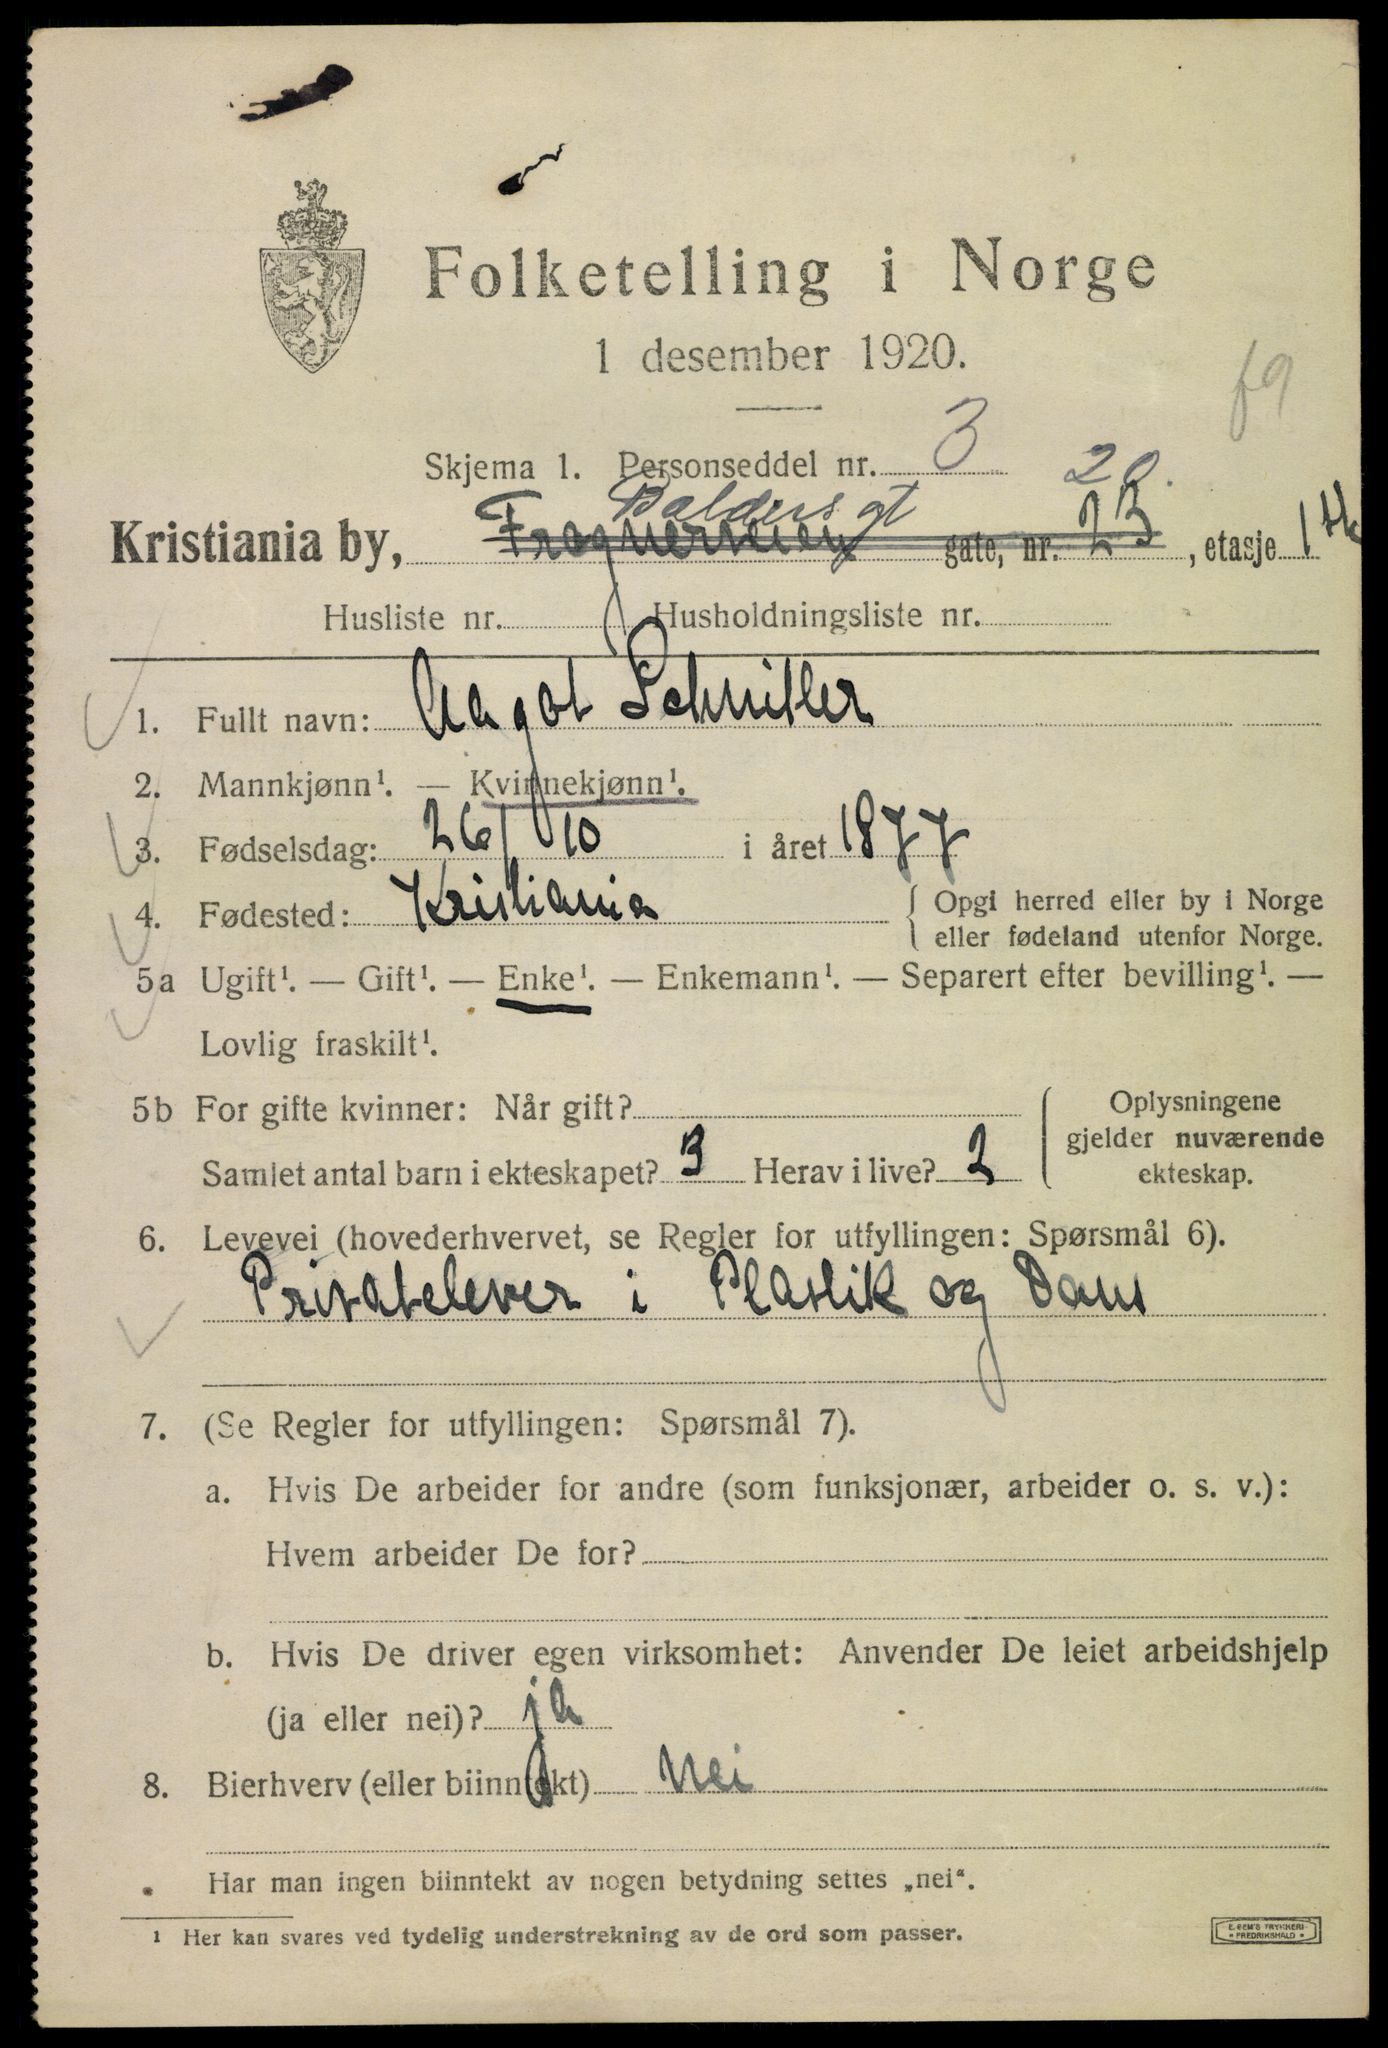 Folketelling i Norge
1 desember 1920.
f9
Skjema 1. Personseddel nr. 3
Baldersgt 20.
Kristiania by, Frognerveien gate, nr. 23, etasje 1
Husliste nr. Husholdningsliste nr.
1. Fullt navn: Aagot Schnitler
2. Mannkjønn¹. — Kvinnekjønn¹.
3. Fødselsdag: 26/10 i året 1877
4. Fødested: Kristiania { Opgi herred eller by i Norge
eller fødeland utenfor Norge.
5a Ugift¹. — Gift¹. — Enke¹. — Enkemann¹. — Separert efter bevilling¹. —
Lovlig fraskilt¹.
5b For gifte kvinner: Når gift? { Oplysningene
gjelder nuværende
Samlet antal barn i ekteskapet? 3 Herav i live? 2 ekteskap.
6. Levevei (hovederhvervet, se Regler for utfyllingen: Spørsmål 6).
Privatelever i Plastik og Dans
7. (Se Regler for utfyllingen: Spørsmål 7).
a. Hvis De arbeider for andre (som funksjonær, arbeider o. s. v.):
Hvem arbeider De for?
b. Hvis De driver egen virksomhet: Anvender De leiet arbeidshjelp
(ja eller nei)? ja
8. Bierhverv (eller biinntekt) Nei
Har man ingen biinntekt av nogen betydning settes „nei“.
¹ Her kan svares ved tydelig understrekning av de ord som passer.
E. SEM'S TRYKKERI
FREDRIKSHALD